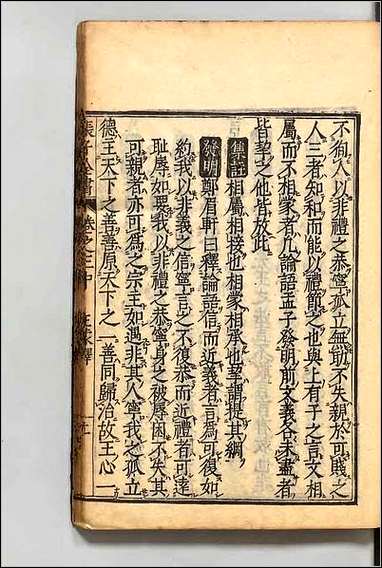 不狥人以非禮之恭寧孤立無助不失親於可賤之
人三者知和而能以禮節之也與上有子之言文相
屬而不相蒙者凡論語孟子發明前文義各未盡者
皆挈之他皆放此
集註相屬相接也相蒙相承也挈謂提其綱
發明鄭眉軒曰釋論語信而近義者言為可復如
約我以非義之信寧言之不復恭而近禮者可遠
恥辱如要我以非禮之恭寧身之破辱因不失其
可親者亦可為之宗主如遇非其人寧我之孤立
德主天下之善善原天下之一善同歸治故王心一
張子全書 卷之三 中 正蒙釋